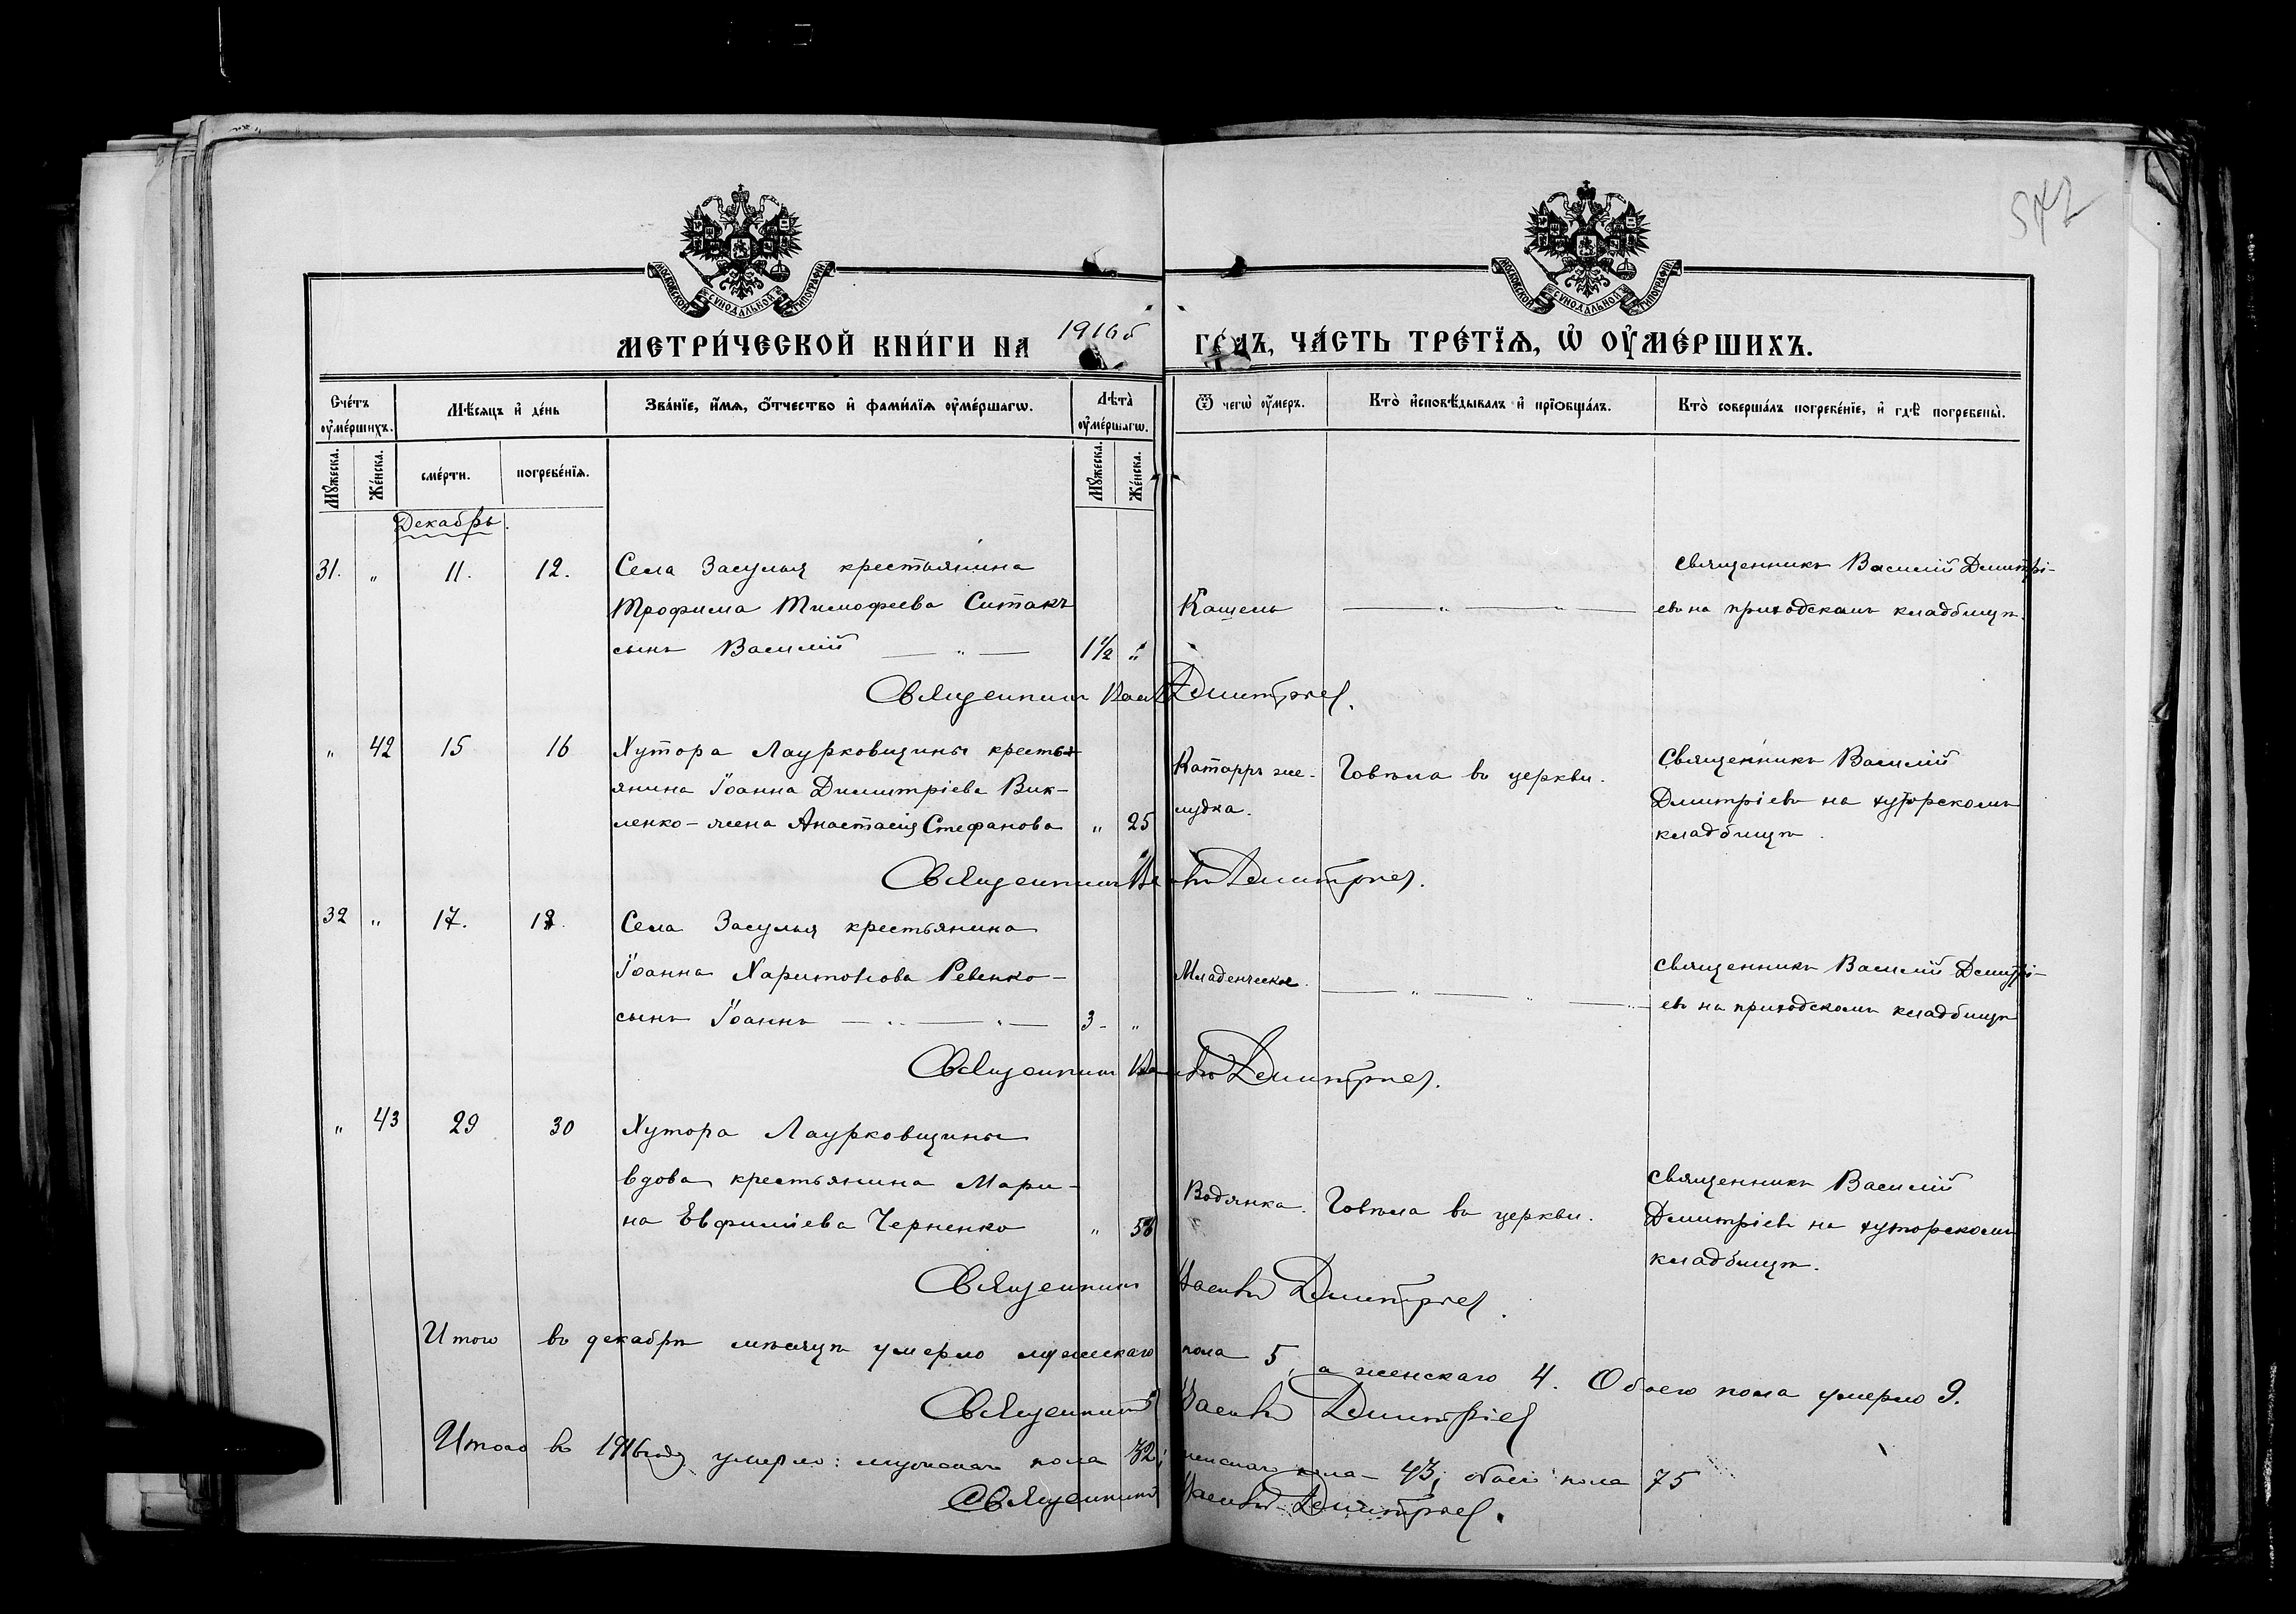 542
МОСКОВСКОЙ СѴНОДАЛЬНОЙ ТИПОГРАФІИ
МОСКОВСКОЙ СѴНОДАЛЬНОЙ ТИПОГРАФІИ
МЕТРИ́ЧЕСКОЙ КНИ́ГИ НА 1916й ГО́ДЪ, ЧА́СТЬ ТРЕ́ТЇѦ, Ѡ҆ ОУ҆МЕ́РШИХЪ.
Сче́тъ оу҆ме́ршихъ.
Мѣ́сѧцъ и҆ де́нь
Зва́нїе, и҆́мѧ, ѻ҆́тчество и҆ фами́лїѧ оу҆ме́ршагѡ.
Лѣта̀ оу҆ме́ршагѡ.
Ѿ чегѡ̀ оу҆́меръ.
Кто̀ и҆сповѣ́дывалъ и҆ прїѻбща́лъ.
Кто̀ соверша́лъ погребе́нїе, и҆ гдѣ̀ погребены̀.
Мꙋ́жеска.
Же́нска.
сме́рти.
погребе́нїѧ.
Мꙋ́жеска.
Же́нска.
Декабрь.
31. " 11. 12. Села Засулья крестьянина
Трофима Тимофеева Ситакъ
сынъ Василій — " — 1½ "
Кашель — " — " —
Священникъ Василій Димитрі-
евъ на приходскомъ кладбищѣ.
Священникъ Василій Димитріев.
" 42 15 16 Хутора Лаурковщины кресть-
янина Іоанна Димитріева Вик-
ленко - жена Анастасія Стефанова " 25
Катарръ же-
лудка.
Говѣла въ церкви.
Священникъ Василій
Димитріевъ на хуторскомъ
кладбищѣ.
Священникъ Василій Димитріев.
32 " 17. 18. Села Засулья крестьянина
Іоанна Харитонова Ревенко -
сынъ Іоаннъ — " — " — 3 - "
Младенческое. — " — " — " —
Священникъ Василій Димитрі-
евъ на приходскомъ кладбищѣ
Священникъ Василій Димитріев.
" 43 29 30 Хутора Лаурковщины
вдова крестьянина Мари-
на Евфиміева Черненко "
Водянка.
Говѣла въ церкви.
Священникъ Василій
Димитріевъ на хуторскомъ
кладбищѣ.
Священникъ Василій Димитріев.
Итого въ декабрѣ мѣсяцѣ умерло мужескаго пола 5, а женскаго 4. Обоего пола умерло 9.
Священникъ Василій Димитріев
Итого въ 1916 году умерло: мужескаго пола 32; женскаго пола - 43; обоего пола 75
Священникъ Василій Димитріев.